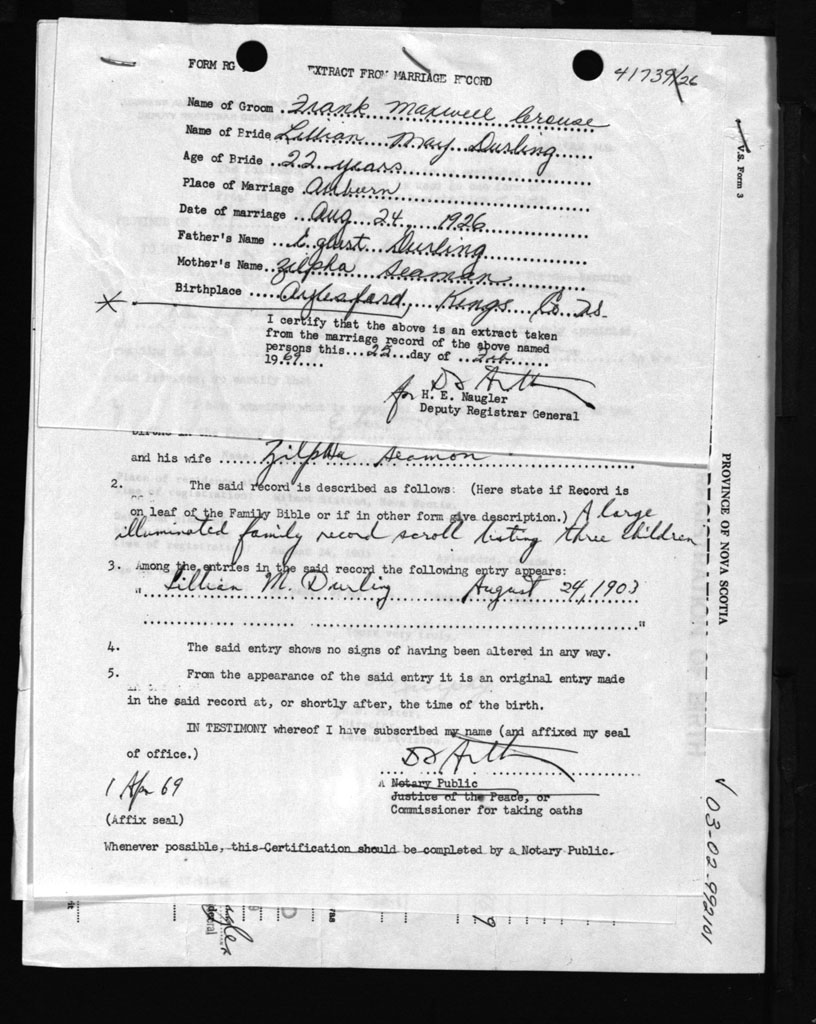 FORM RG
EXTRACT FROM MARRIAGE RECORD
41739/26
Name of Groom . Frank Maxwell Crouse
Name of Bride Lillian May Durling
Age of Bride .. 22 years
Place of Marriage Auburn
Date of marriage .. Aug 24 1926
Father's Name .. Durling
Mother's Name .. Zilpha Seaman
Birthplace .... Aylesford, Kings Co. NS.
I certify that the above is an extract taken
from the marriage record of the above named
persons this...22...day of ..Feb
1969
for H. E. Naugler
Deputy Registrar General
and his wife ...... Zilpha Seamon
2. The said record is described as follows: (Here state if Record is
on leaf of the Family Bible or if in other form give description.) A large
illuminated family record scroll listing three children
3. Among the entries in the said record the following entry appears:
" Lillian M. Durling August 24, 1903
"
4. The said entry shows no signs of having been altered in any way.
5. From the appearance of the said entry it is an original entry made
in the said record at, or shortly after, the time of the birth.
IN TESTIMONY whereof I have subscribed my name (and affixed my seal
of office.)
1 Apr 69
A Notary Public
Justice of the Peace, or
Commissioner for taking oaths
(Affix seal)
Whenever possible, this Certification should be completed by a Notary Public.
V.S. Form 3
PROVINCE OF NOVA SCOTIA
REGISTRATION OF BIRTH
03-02-992101